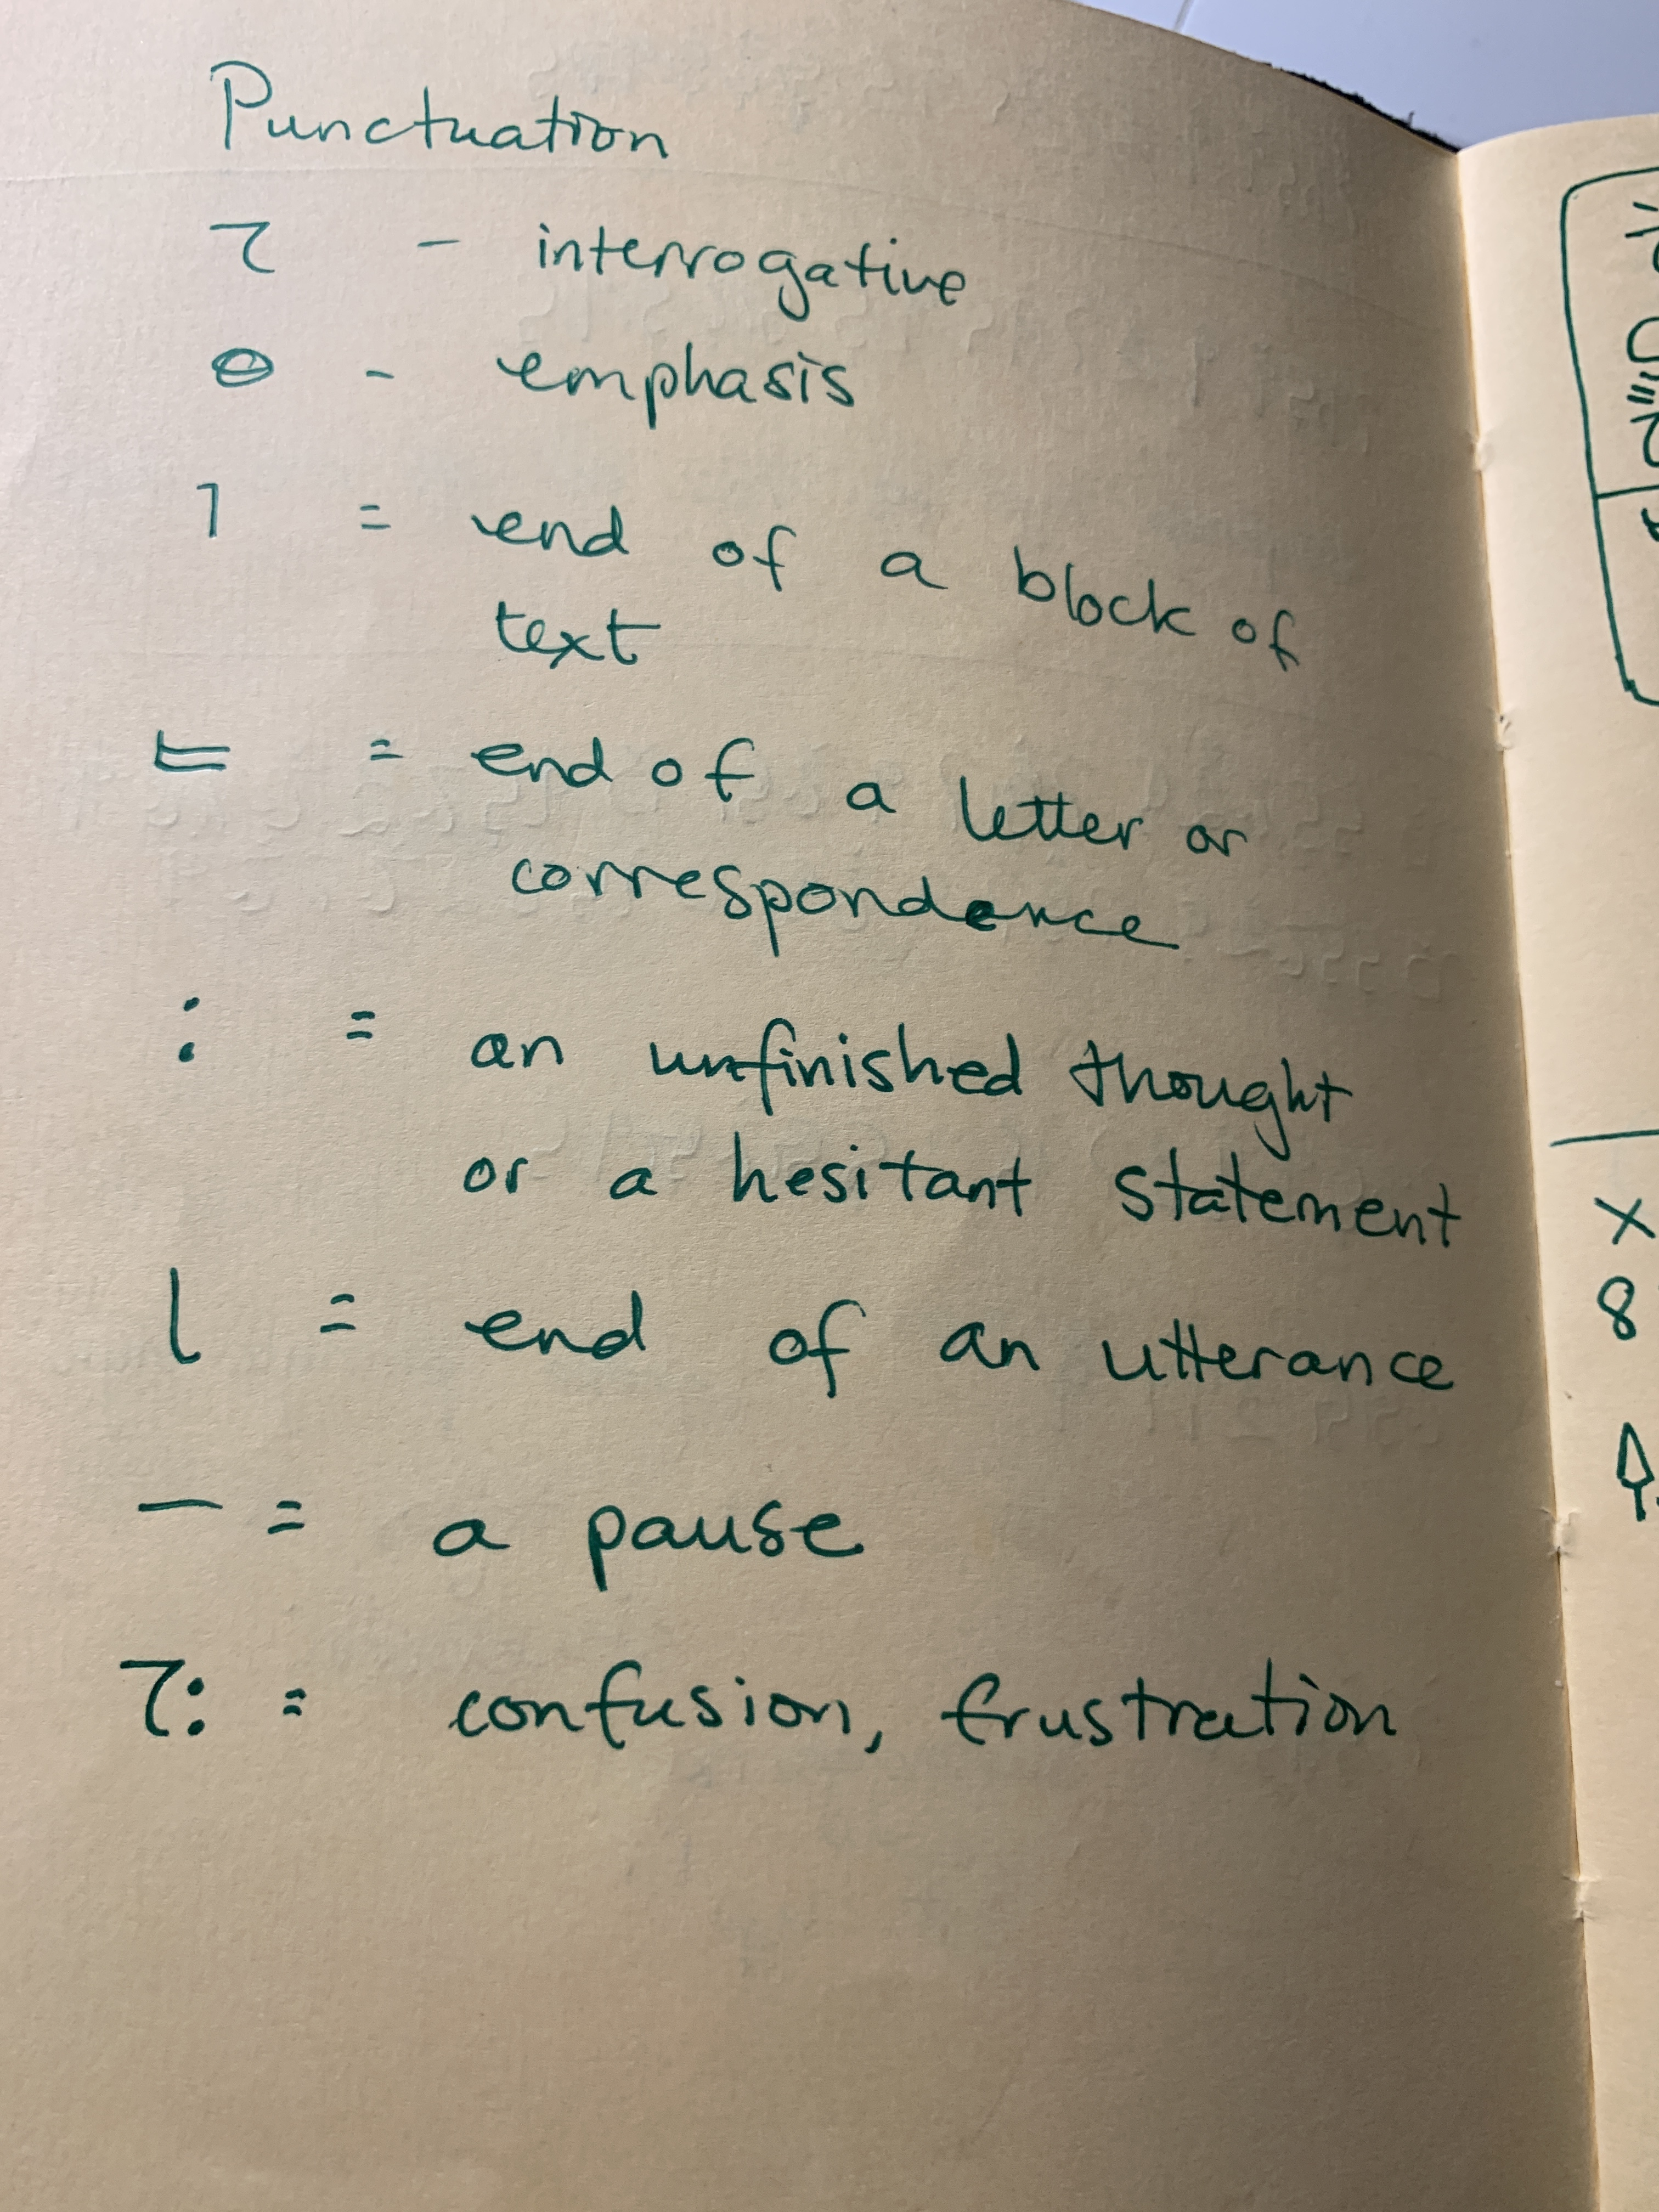 Punctuation
ㄟ - interrogative
ө - emphasis
˥ = end of a block of
text
= end of a letter or
correspondence
: = an unfinished thought
or a hesitant statement
l = end of an utterance
— = a pause
: = confusion, frustration
x
8